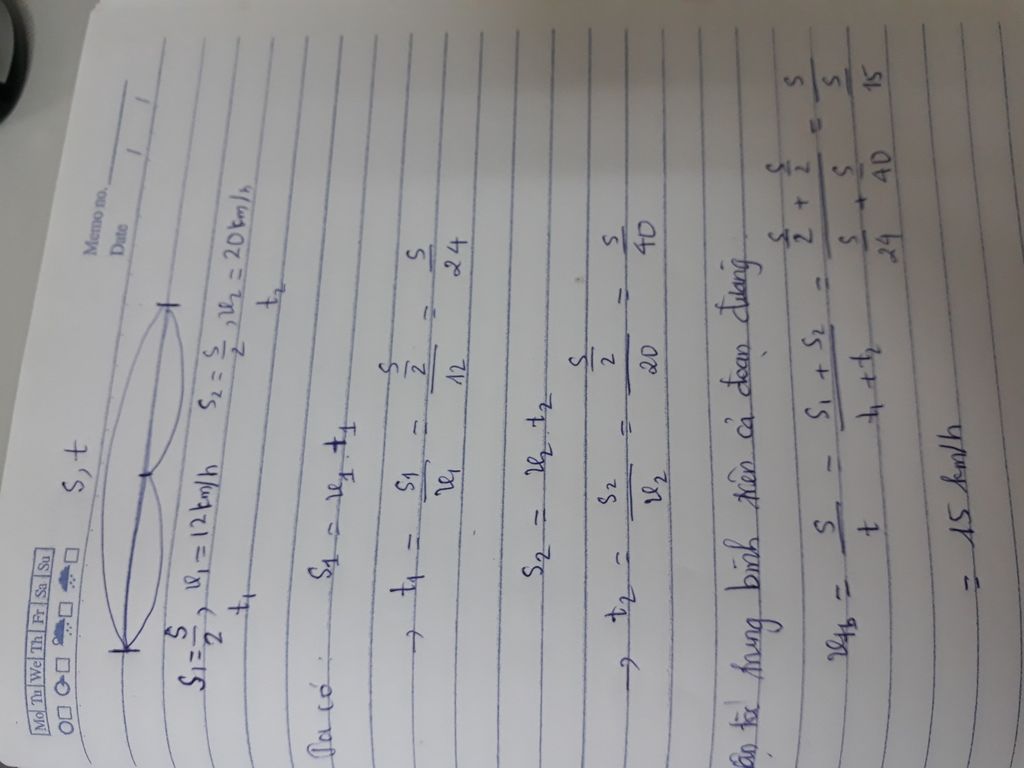 Mo Tu We Th Fr Sa Su
Memo no.
Date / /
S, t
S1 = S/2, v1 = 12 km/h S2 = S/2, v2 = 20 km/h
t1 t2
Ta có: S1 = v1 . t1
→ t1 = S1/v1 = (S/2)/12 = S/24
S2 = v2 . t2
→ t2 = S2/v2 = (S/2)/20 = S/40
tốc trung bình trên cả đoạn đường
vtb = S/t = (S1 + S2)/(t1 + t2) = (S/2 + S/2)/(S/24 + S/40) = S/(S/15)
= 15 km/h